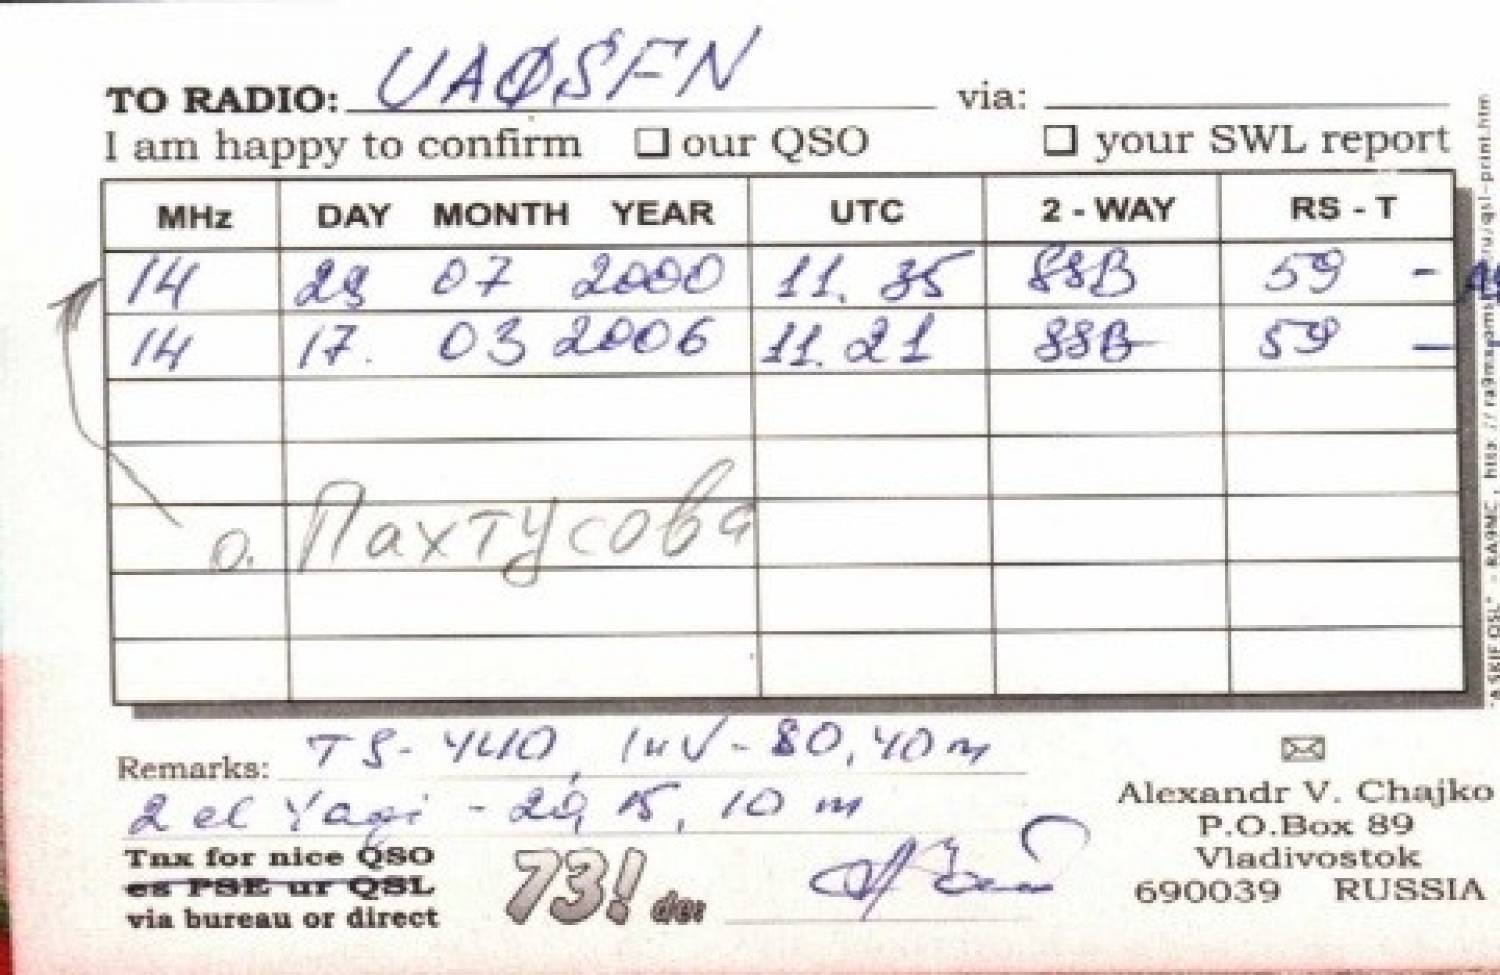 TO RADIO: UAØSFN via:
I am happy to confirm our QSO your SWL report
MHz DAY MONTH YEAR UTC 2 - WAY RS - T
14 29 07 2000 11. 35 SSB 59 -
14 17. 03 2006 11. 21 SSB 59 -
о. Пахтусова
Remarks: TS-440, InV-80,40m
2 el Yagi - 20, 15, 10 m
Tnx for nice QSO
es PSE ur QSL
via bureau or direct
73! de:
Alexandr V. Chajko
P.O.Box 89
Vladivostok
690039 RUSSIA